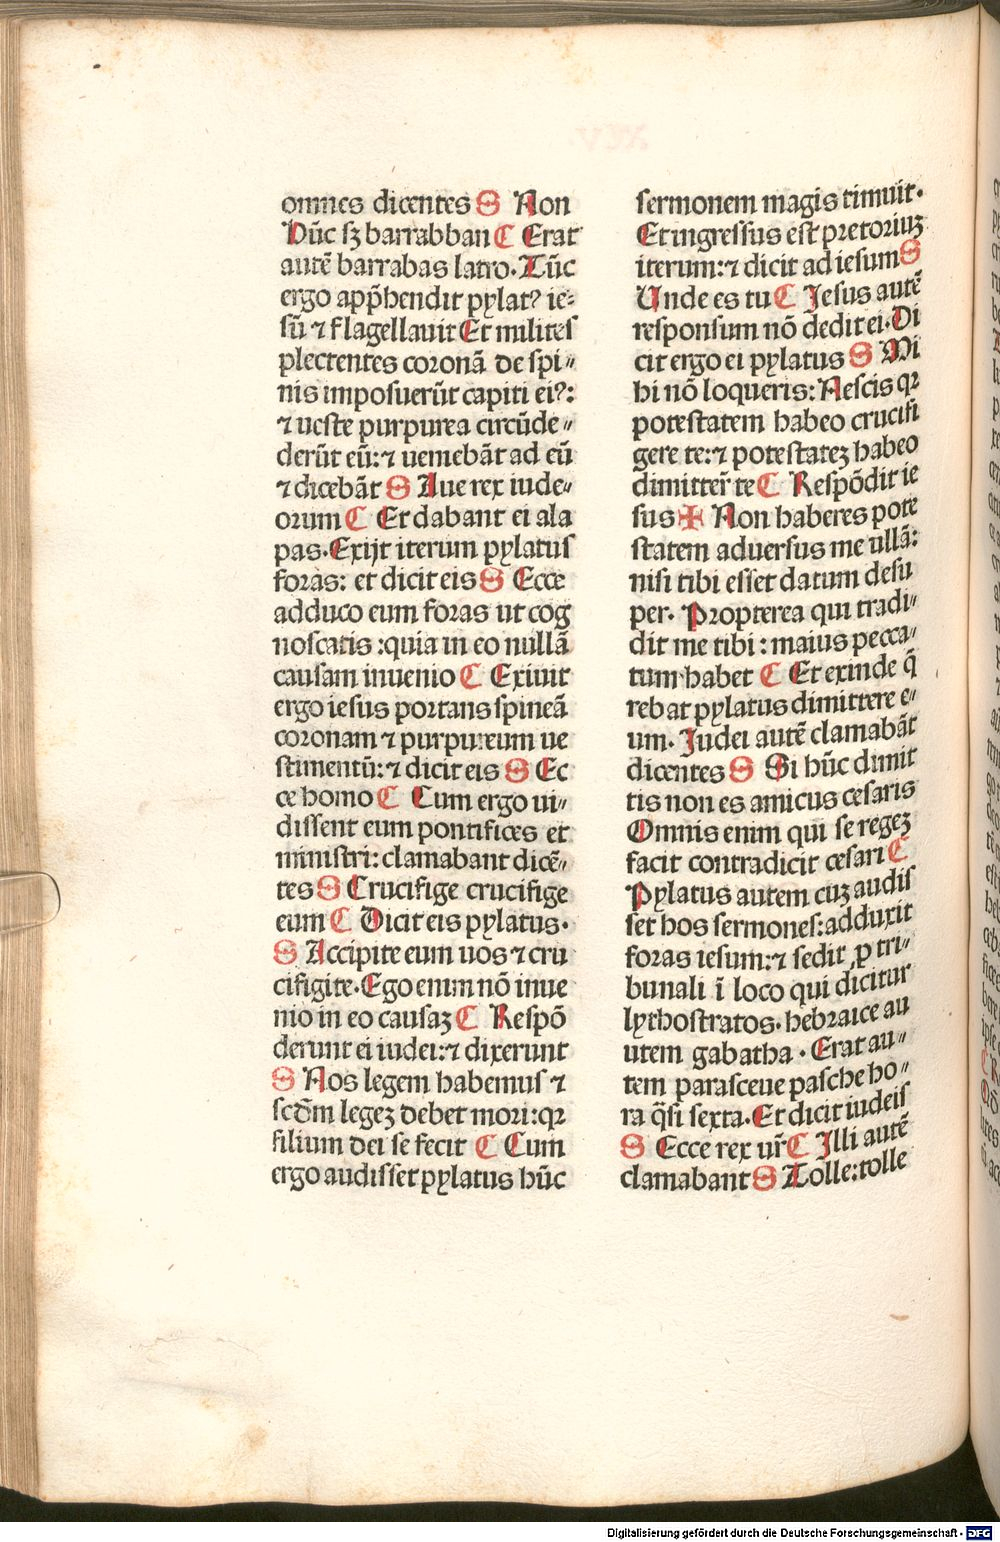 omnes dicentes S Non
hūc sꝫ barrabban C Erat
autē barrabas latro. Tūc
ergo app̄hendit pylatꝰ ie-
sū ⁊ flagellauit Et milites
plectentes coronā de spi-
nis imposuerūt capiti eiꝰ:
⁊ ueste purpurea circūde-
derūt eū: ⁊ ueniebāt ad eū
⁊ dicebāt S Aue rex iude-
orum C Et dabant ei ala
pas. Exijt iterum pylatus
foras: et dicit eis S Ecce
adduco eum foras ut cog
noscatis: quia in eo nullā
causam inuenio C Exiuit
ergo iesus portans spineā
coronam ⁊ purpureum ue
stimentū: ⁊ dicit eis S Ec
ce homo C Cum ergo ui-
dissent eum pontifices et
ministri: clamabant dicē-
tes S Crucifige crucifige
eum C Dicit eis pylatus.
S Accipite eum uos ⁊ cru
cifigite. Ego enim nō inue
nio in eo causaꝫ C Respō
derunt ei iudei: ⁊ dixerunt
S Nos legem habemus ⁊
scd̄m legeꝫ debet mori: qꝛ
filium dei se fecit C Cum
ergo audisset pylatus hūc
sermonem magis timuit.
Et ingressus est pretoriuꝫ
iterum: ⁊ dicit ad iesum S
Unde es tu C Jesus autē
responsum nō dedit ei. Di
cit ergo ei pylatus S Mi
hi nō loqueris: Nescis qꝛ
potestatem habeo crucifi
gere te: ⁊ potestateꝫ habeo
dimitter̄ te C Respōdit ie
sus ✠ Non haberes pote
statem aduersus me ullā:
nisi tibi esset datum desu
per. Propterea qui tradi-
dit me tibi: maius pecca-
tum habet C Et exinde q̄
rebat pylatus dimittere e-
um. Judei autē clamabāt
dicentes S Si hūc dimit
tis non es amicus cesaris
Omnis enim qui se regeꝫ
facit contradicit cesari C
Pylatus autem cuꝫ audis
set hos sermones: adduxit
foras iesum: ⁊ sedit ꝓ tri-
bunali ī loco qui dicitur
lythostratos. hebraice au
utem gabatha. Erat au-
tem parasceue pasche ho-
ra q̄si sexta. Et dicit iudeis
S Ecce rex ur̄ C Illi autē
clamabant S Tolle: tolle
Digitalisierung gefördert durch die Deutsche Forschungsgemeinschaft - DFG